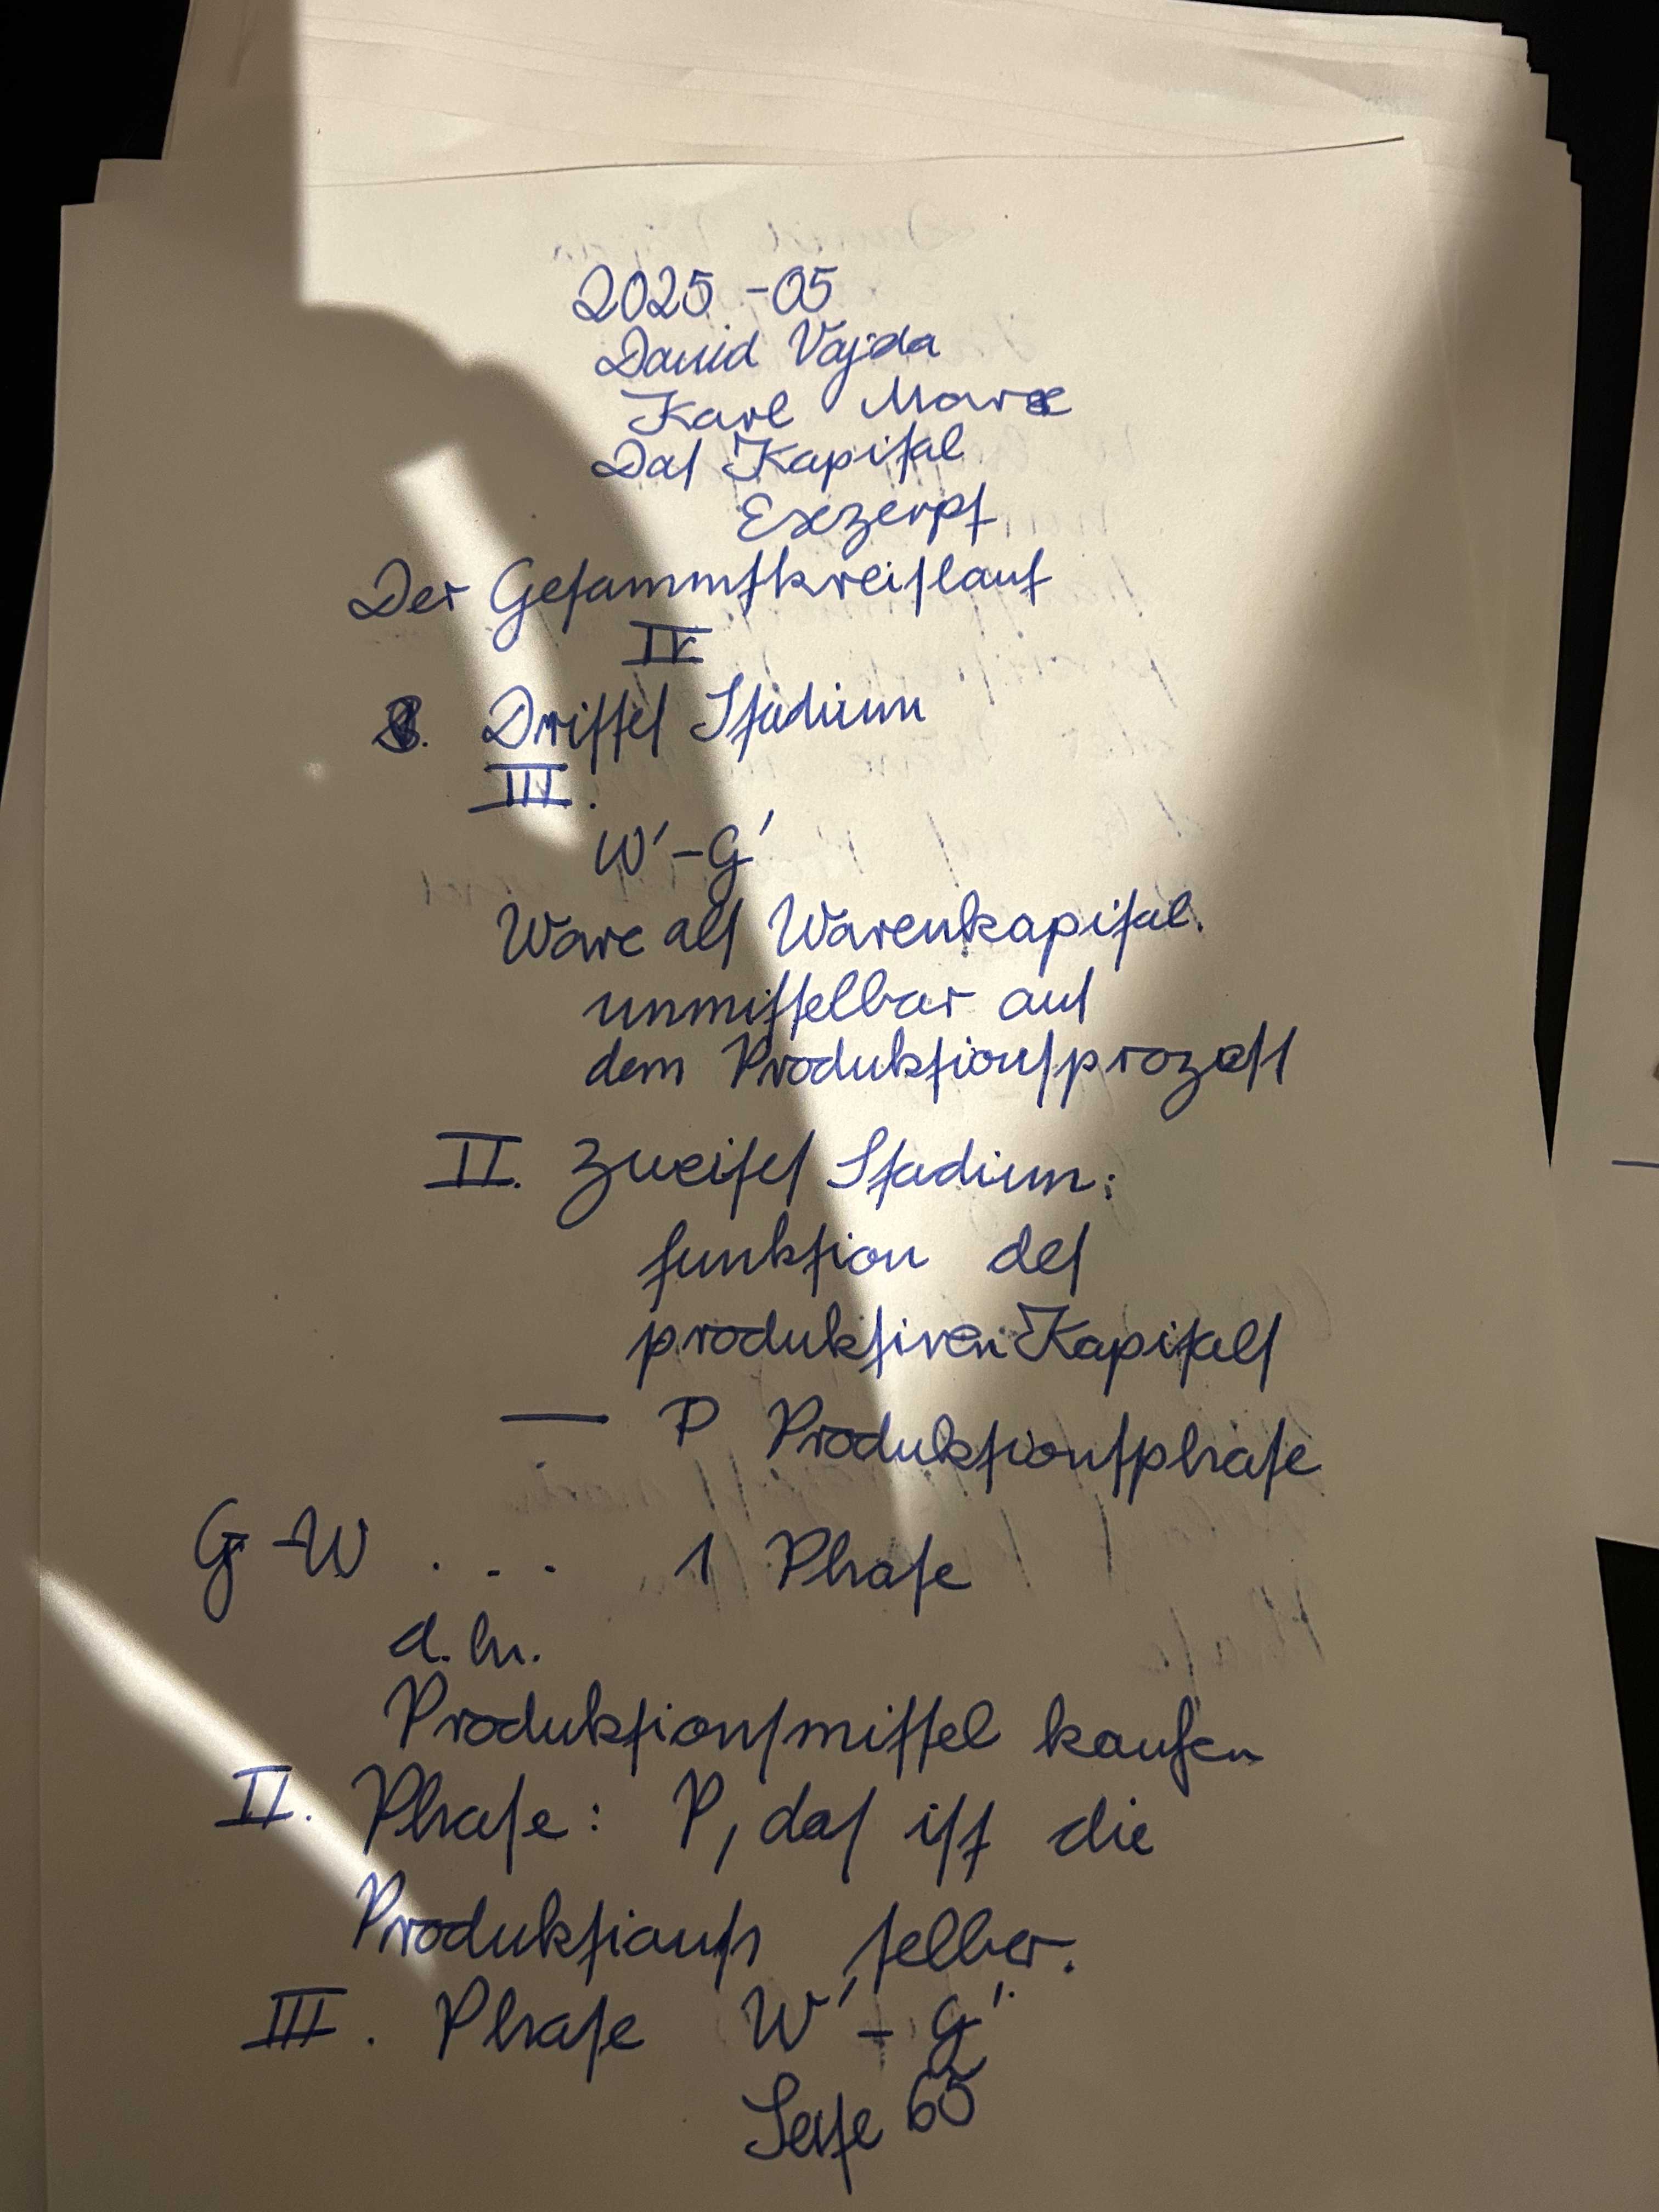 2025-05
David Vajda
Karl Marx
Das Kapital
Exzerpt
Der Gesammtkreislauf
IV
Drittes Stadium
III.
W'-G'
Ware als Warenkapital.
unmittelbar aus
dem Produktionsprozess
II. Zweites Stadium:
funktion des
produktiven Kapitals
— P Produktionsphase
G-W ... 1 Phase
d.h.
Produktionsmittel kaufen
II. Phase: P, das ist die
selber.
III. Phase W'-G'
Seite 65